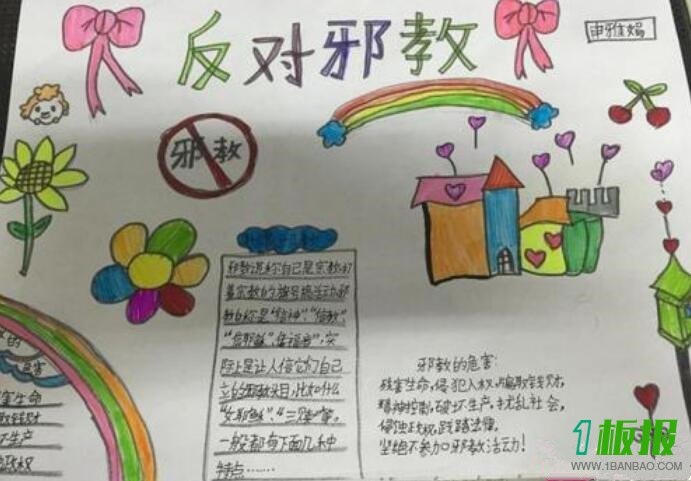 反对邪教
申雅娟
邪教
邪教说称自己是宗教,打
着宗教的旗号搞活动,邪
教自称是“信神”、“信教”
“信耶稣”、传福音”,实
际上是让人信它们自己
立的邪教头目,比如什么
“女耶稣”、“三赎”等。
一般都有下面几种
特点……
邪教的危害:
残害生命,侵犯人权,骗取钱财,
精神控制,破坏生产,扰乱社会,
侵蚀政权,践踏法律,
坚绝不参加邪教活动!
的
危害
害生命
取钱财
不生产
政权
1板报
WWW.1BANBAO.COM